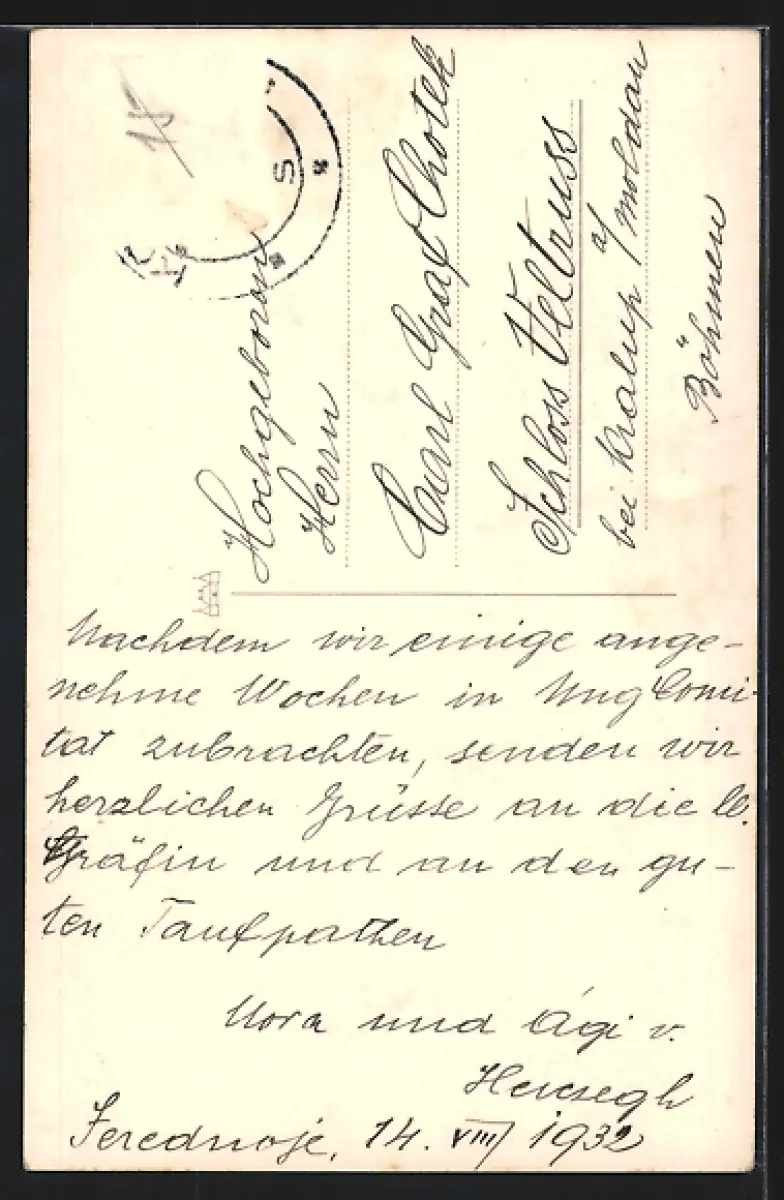 15
S
Hochgeboren
Herrn
Carl Graf Chotek
Schloss Veltruss
bei Kralup a/Moldau
Böhmen
Nachdem wir einige ange-
nehme Wochen in Ung Comi-
tat zubrachten, senden wir
herzlichen Grüsse an die ll.
Gräfin und an den gu-
ten Taufpathen
Nora und Ági v.
Hercsegh
Serednoje, 14. VIII/ 1932